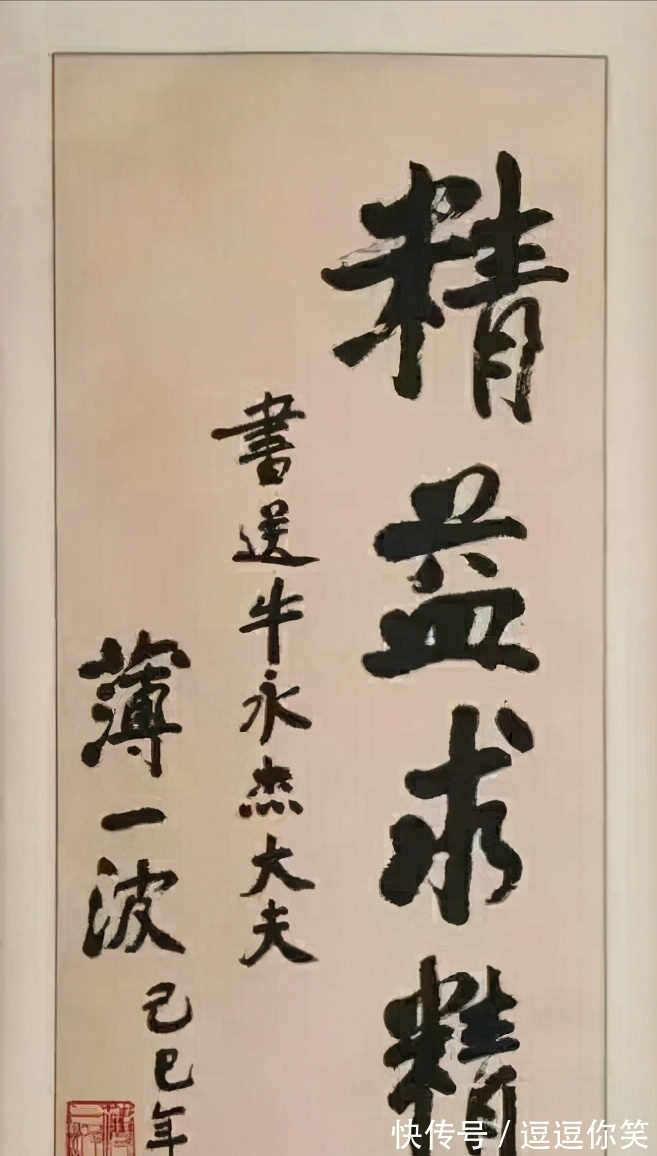 精益求精
書送牛永杰大夫
薄一波
己巳年
快传号/逗逗你笑